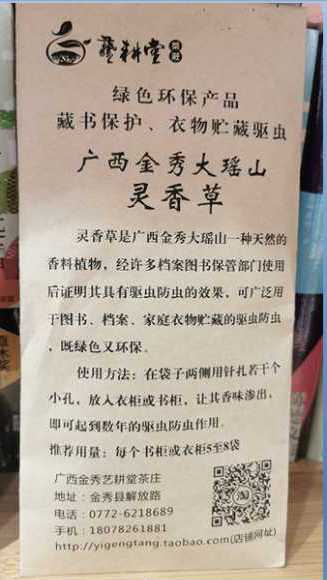 藝耕堂
绿色环保产品
藏书保护、衣物贮藏驱虫
广西金秀大瑶山
灵香草
灵香草是广西金秀大瑶山一种天然的
香料植物，经许多档案图书保管部门使用
后证明其具有驱虫防虫的效果，可广泛用
于图书、档案、家庭衣物贮藏的驱虫防虫
，既绿色又环保。
使用方法：在袋子两侧用针扎若干个
小孔，放入衣柜或书柜，让其香味渗出，
即可起到数年的驱虫防虫作用。
推荐用量：每个书柜或衣柜5至8袋
广西金秀艺耕堂茶庄
地址：金秀县解放路
电话：0772-6218689
手机：18078261881
http://yigengtang.taobao.com(店铺网址)